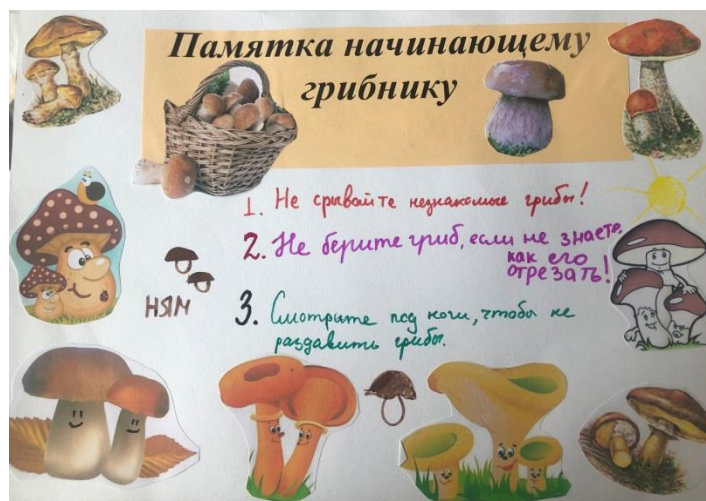 Памятка начинающему
грибнику
1. Не срывайте незнакомые грибы!
2. Не берите гриб, если не знаете,
как его
отрезать!
НЯМ
3. Смотрите под ноги, чтобы не
раздавить грибы.